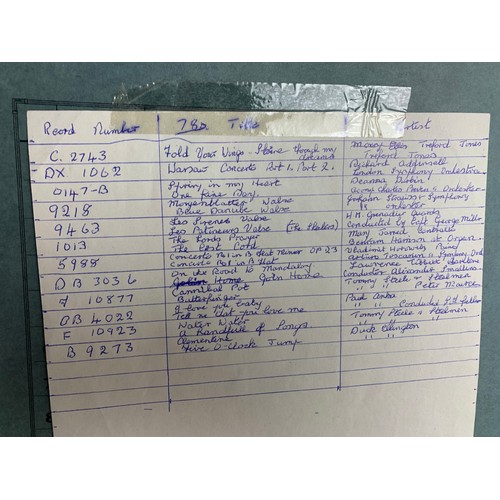 Record Number 78s. Title Artist
C. 2743 Fold Your Wings - Shine through my dreams Mary Ellis Treford Jones
Treford Jones
DX. 1062 Warsaw Concerto Part 1. Part 2. Richard Addinsell
London Symphony Orchestra
0147-B Spring in my Heart Deanna Durbin
One Fine Day.
9218 Morgenblatter Walse Johann Strauss Symphony
Blue Danube Walse Orchester
9463 Les Sirenes Valse H.M. Grenadier Guards
Les Patineurs Valse (The Skaters) Conducted by Capt George Miller
1013 The Lords Prayer Mary Jarred Contralto
The Lost Cord
5988 Concerto No 1 in B Flat Minor OP 23 Vladimir Horowitz
Concerto No 1 in B Flat
DB 3036 On the Road to Mandalay Lawrence Tibbett
Home John Home
10877 Cannibal Pot Tommy Steele & Steelmen
Butterfinger
DB 4022 I love you baby Paul Anka
Tell me that you love me
F 10923 Water Water Tommy Steele & Steelmen
A Handful of Songs
B 9273 Clementine Duke Ellington
Five O-Clock Jump " "